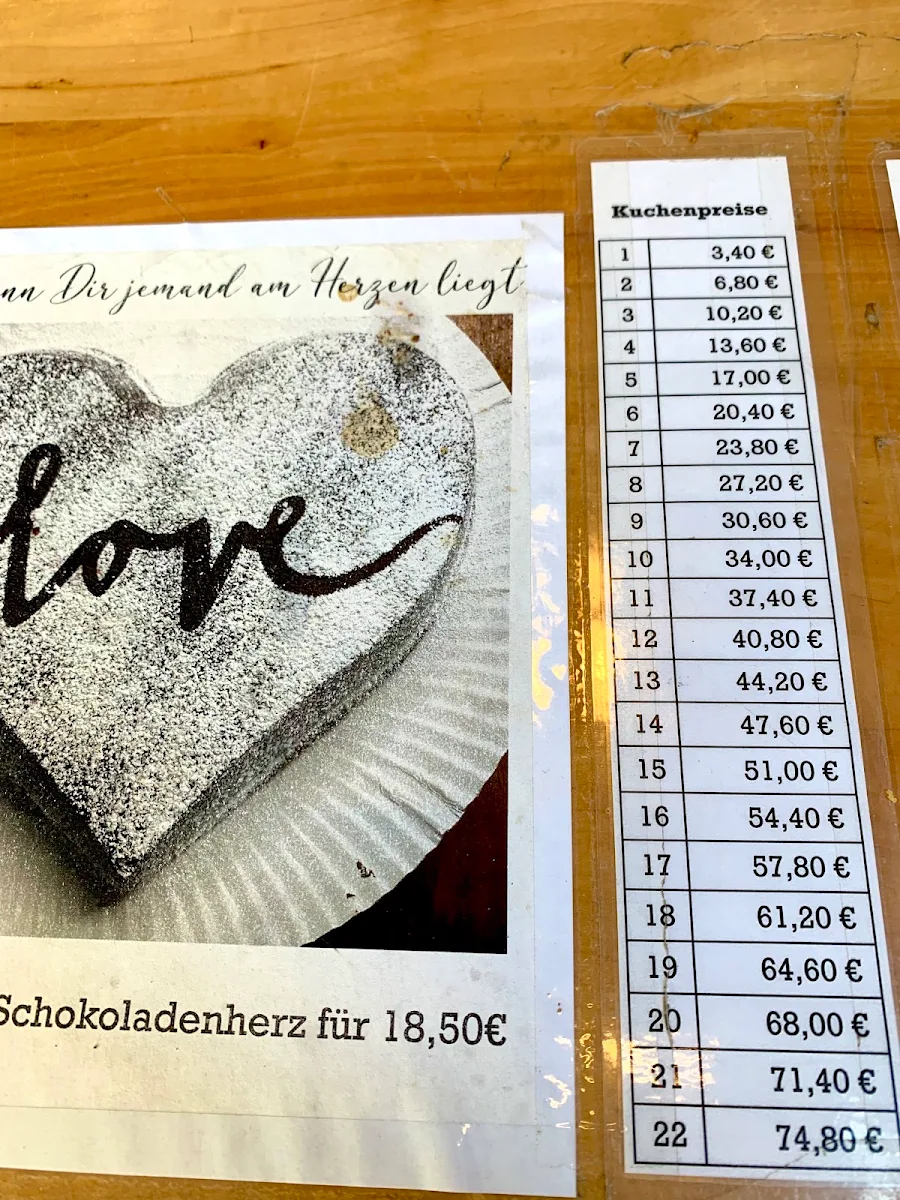 nn Dir jemand am Herzen liegt
love
Schokoladenherz für 18,50€
Kuchenpreise
1 3,40 €
2 6,80 €
3 10,20 €
4 13,60 €
5 17,00 €
6 20,40 €
7 23,80 €
8 27,20 €
9 30,60 €
10 34,00 €
11 37,40 €
12 40,80 €
13 44,20 €
14 47,60 €
15 51,00 €
16 54,40 €
17 57,80 €
18 61,20 €
19 64,60 €
20 68,00 €
21 71,40 €
22 74,80 €